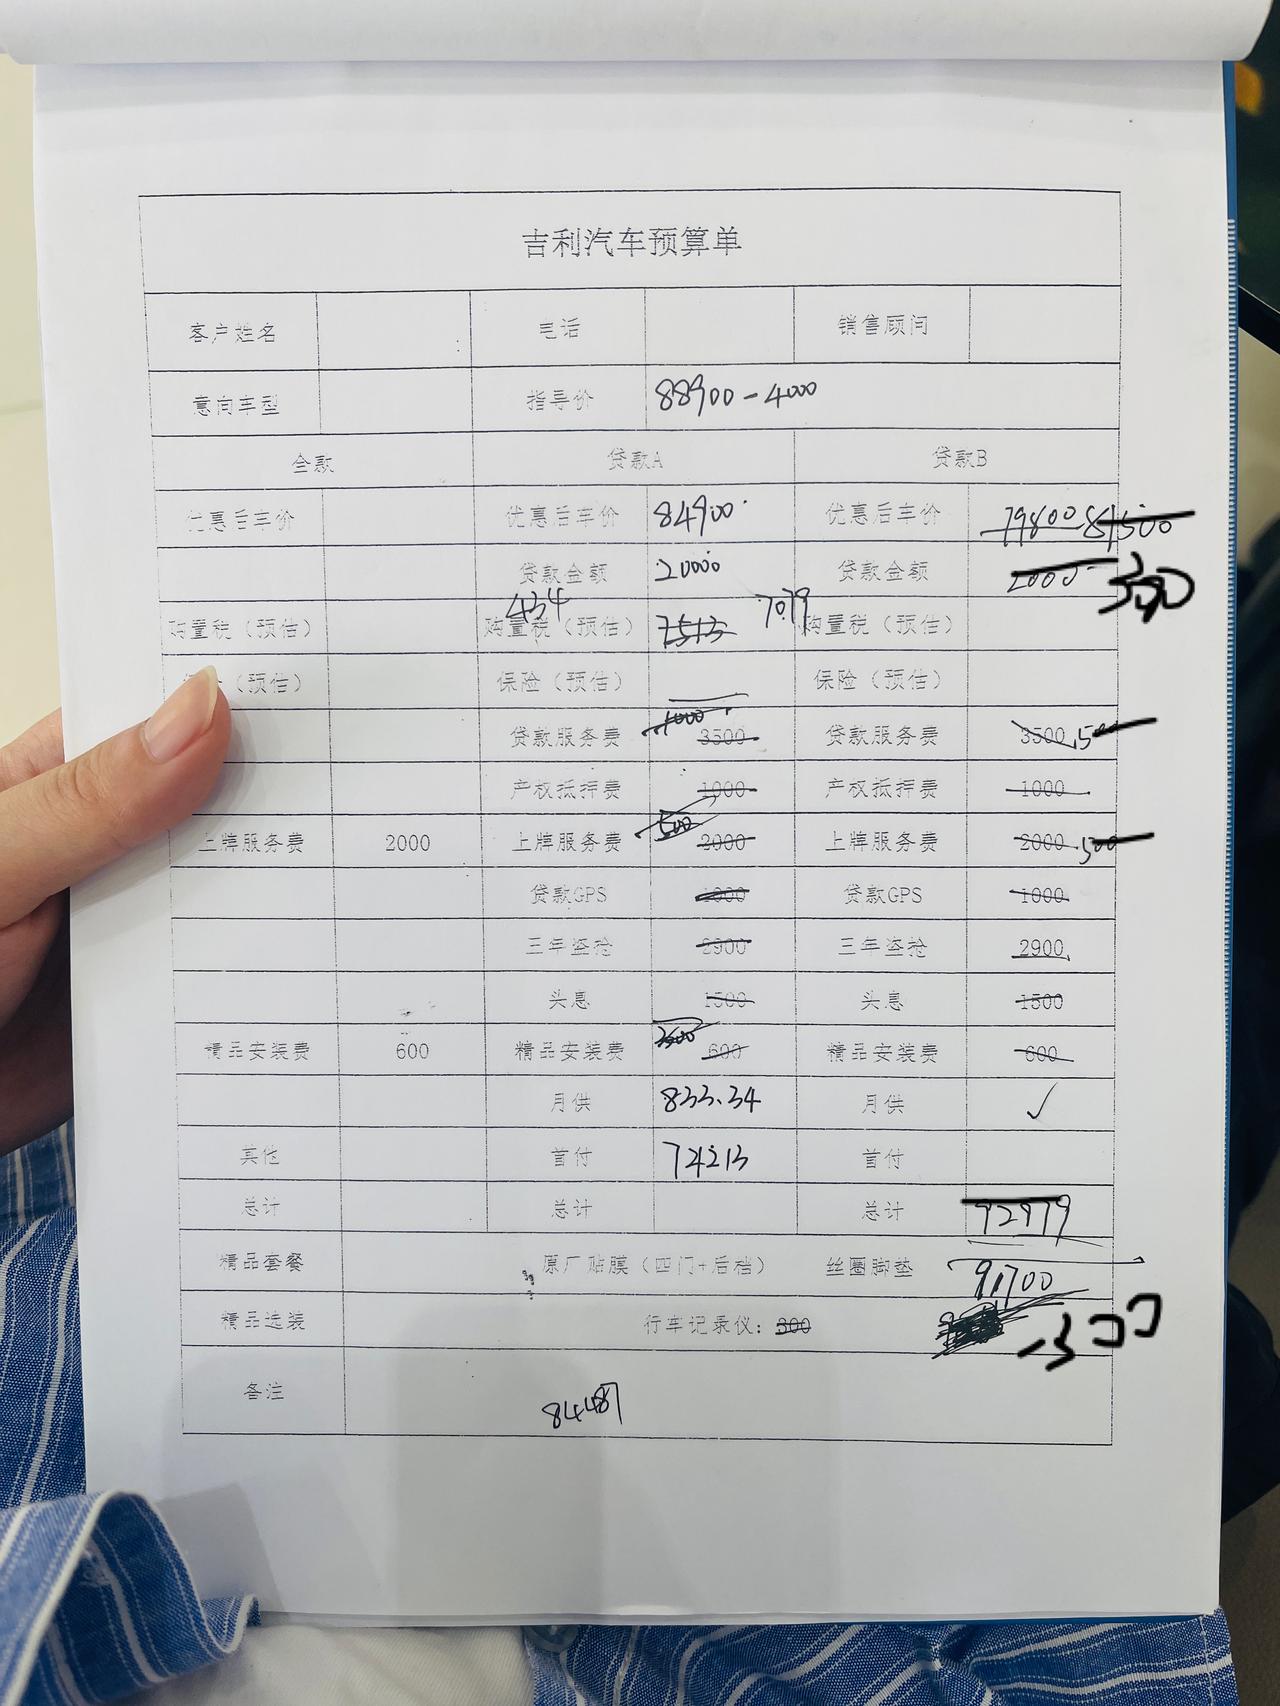 吉利汽车预算单
客户姓名 电话 销售顾问
意向车型 指导价 88900-4000
全款 贷款A 贷款B
优惠后车价 优惠后车价 84900 优惠后车价 79800 81500
贷款金额 20000 贷款金额
434 7079
购置税（预估） 购置税（预估） 7513 购置税（预估）
（预估） 保险（预估） 保险（预估）
贷款服务费 1000 3500 贷款服务费 3500
产权抵押费 1000 产权抵押费 1000
上牌服务费 2000 上牌服务费 500 2000 上牌服务费 2000 500
贷款GPS 1000 贷款GPS 1000
三年盗抢 2900 三年盗抢 2900
头息 1500 头息 1500
精品安装费 600 精品安装费 600 精品安装费 600
月供 833.34 月供 ✓
其他 首付 74213 首付
总计 总计 总计 92979
精品套餐 原厂贴膜（四门+后档） 丝圈脚垫 91700
精品选装 行车记录仪：300 -300
备注 84487